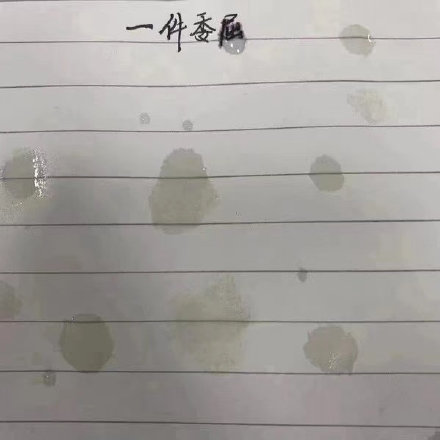 一件委屈